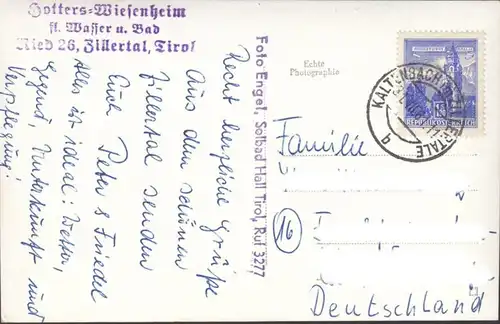 Hotters-Wiesenheim
fl. Wasser u. Bad
Ried 26, Zillertal, Tirol
Recht herzliche Grüße
Aus dem schönen
Zillertal senden
Euch Peter & Friedel
Alles ist ideal: Wetter,
Gegend, Unterkunft und
Verpflegung!
Foto Engel, Solbad Hall Tirol, Ruf 3277
Echte
Photographie
KALTENBACH
REPUBLIK ÖSTERREICH
Familie
16
Deutschland